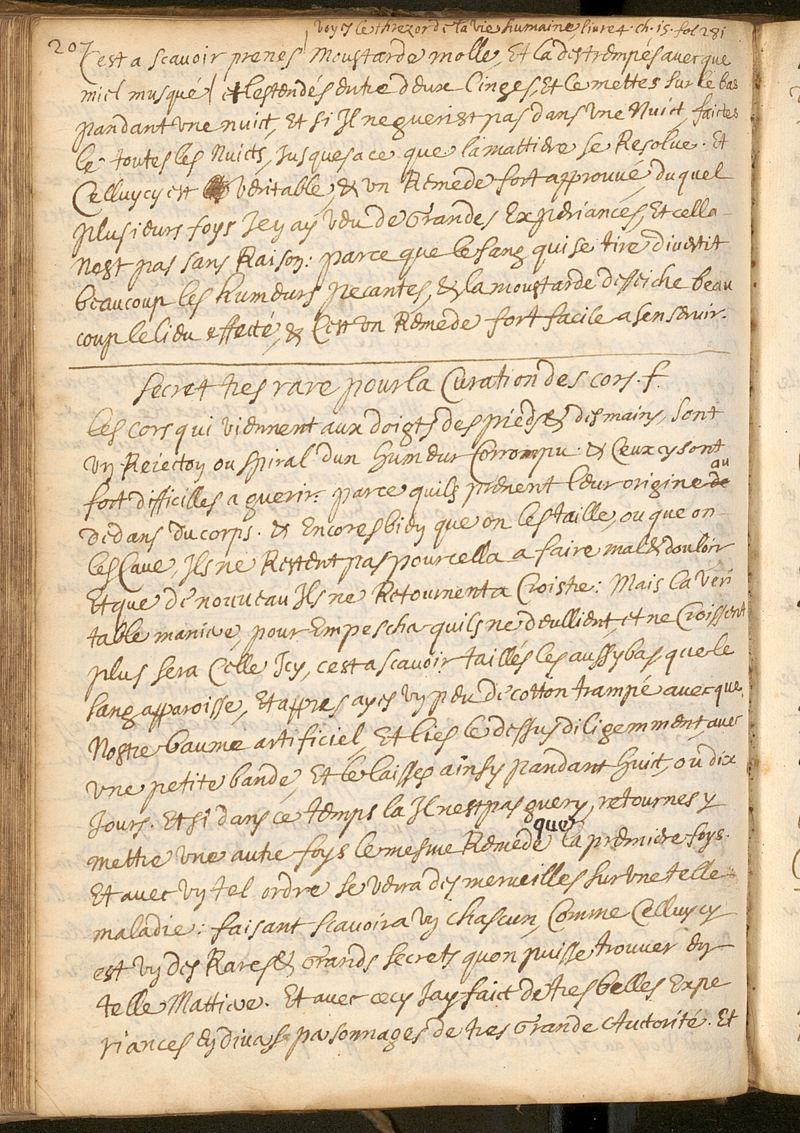 voyés le threzor de la vie humaine livre 4. ch. 15. fol 281
207
C'est a scavoir prenes moustarde molle, Et la destrempés avecque
miel musqué et lestendés entre deux linges, Et le mettes sur le bas
pandant une nuict, Et si Il ne guerist pas dans une Nuict, faictes
le toutes les Nuicts, Jusques a ce que la mattiere se Resolve. Et
Celluycy est veritable, & un Remede fort approuvé duquel
plusieurs foys Jey ay veu de Grandes Experiances, Et cella
Nest pas sans Raison: parce que le sang qui se tire divertit
beaucoup les humeurs pecantes, & la moustarde desseiche beau
coup le lieu effecté, & C'est un Remede fort facile a sen servir.
Secret tres rare pour la Curation des cors. f.
les cors qui viennent aux doigts des pieds & des mains, sont
un Reiecton ou spiral dun humeur Corrompu. & Ceux cy sont
fort difficilles a guerir. parce quils prenent leur origine de au
dedans du corps. & Encores bien que on les taille, ou que on
les Cave, Ils ne Restent pas pour cella a faire mal & douloir
Et que de nouveau Ils ne Retournent a Croistre: Mais la veri
table maniere, pour Empescher quils ne deullient et ne Croissent
plus sera Celle Icy, cest a scavoir tailles les aussy bas que le
sang apparoisse, Et appres ayes un peu de cotton trampé avecque
Nostre baume artificiel, Et lies le dessus diligemment, avec
une petite bande, Et le laisses ainsy pandant huit, ou dix
Jours. Et si dans ce temps la Il nest pas guery, retournes y
mettre une autre foys le mesme Remede que la premiere foys.
Et avec un tel ordre se verra des merveilles sur une telle
maladie: faisant scavoir a un chascun, Comme Celluycy
est un des Rares & Grands secrets quon puisse trouver en
telle Mattiere. Et avec cecy Jay faict de tres belles Expe
riances en divers personnages de tres Grande Authorité. Et